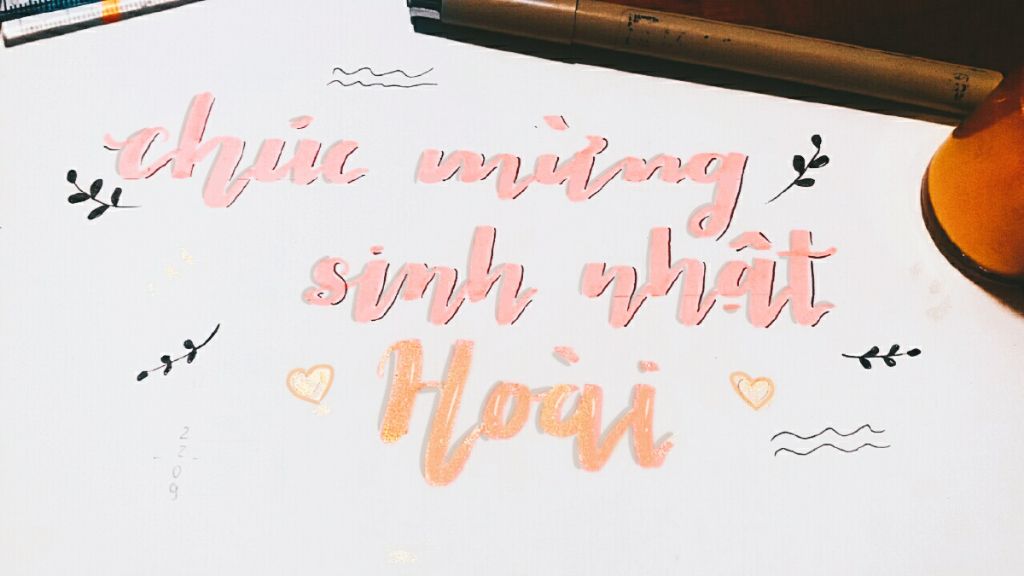 chúc mừng
sinh nhật
Hoài
2
2
0
9